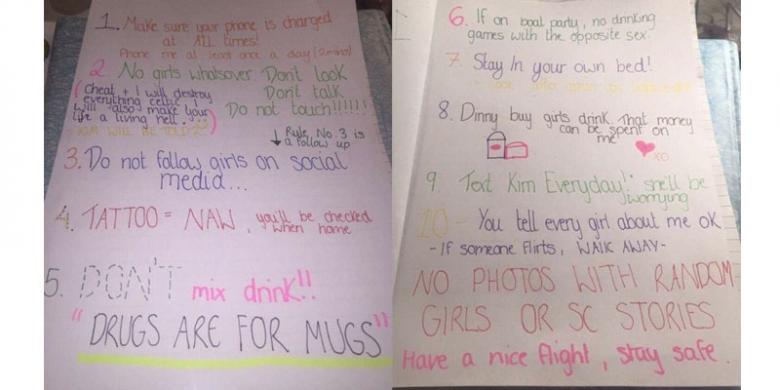 1. Make sure your phone is charged
at ALL times!
Phone me at least once a day (2 mins)
2. No girls whatsover. Dont look
Dont talk
Do not touch!!!!!!
(Cheat + I will destroy
everything celtic, I
will also make your
life a living hell.
↓ Rule No.3 is
a follow up
3. Do not follow girls on social
media...
4. TATTOO = NAW, you'll be checked
when home
5. DON'T mix drink!!
"DRUGS ARE FOR MUGS"
6. If on boat party, no drinking
games with the opposite sex.
7. Stay In your own bed!
8. Dinny buy girls drink. That money
can be spent on
me!
xo
9. Text Kim Everyday! she'll be
worrying
10 - You tell every girl about me ok
- If someone flirts, WALK AWAY -
NO PHOTOS WITH RANDOM
GIRLS OR SC STORIES
Have a nice flight, stay safe.